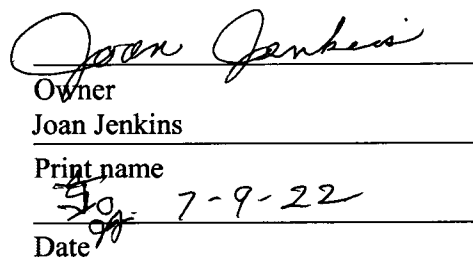 Joan Jenkins
Owner
Joan Jenkins
Print name
7-9-22
Date